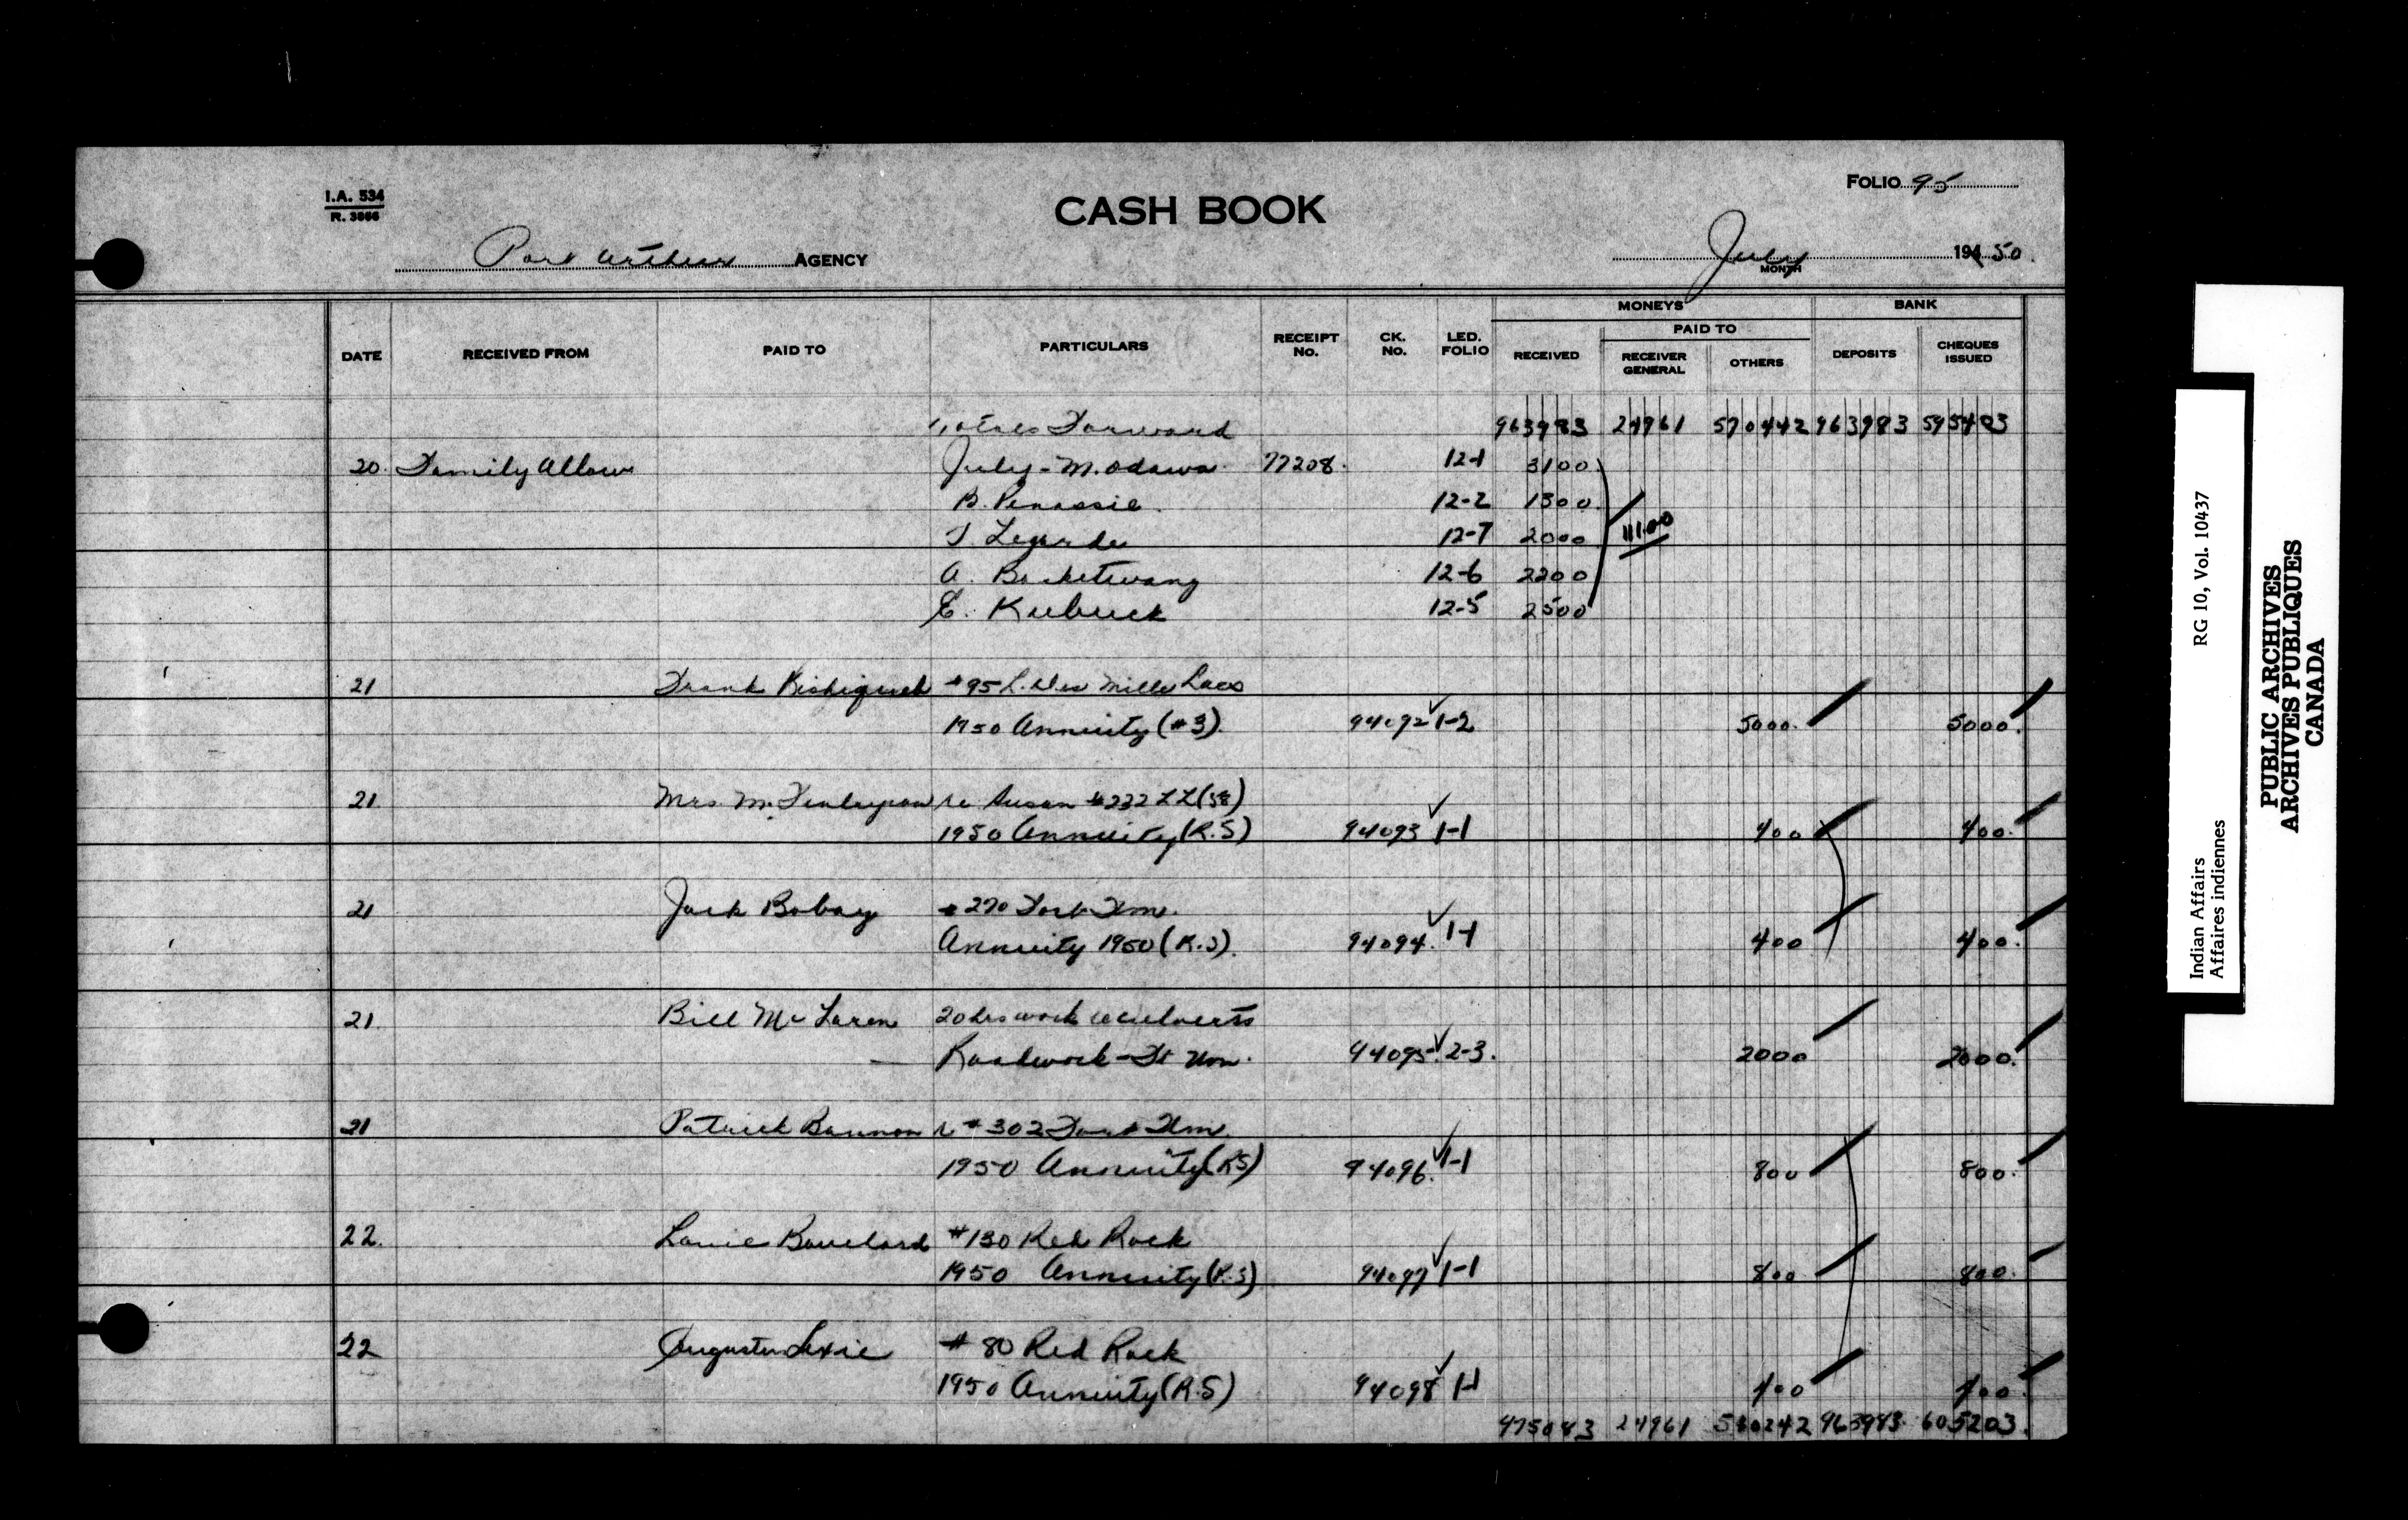 I.A. 534
R. 3866
CASH BOOK
FOLIO 95
Port Arthur AGENCY
July MONTH 194 50.
MONEYS BANK
PAID TO
DATE RECEIVED FROM PAID TO PARTICULARS RECEIPT No. CK. No. LED. FOLIO RECEIVED RECEIVER GENERAL OTHERS DEPOSITS CHEQUES ISSUED
Forward 963983 24961 570442 963983 595403
20. Family Allow July - M. Odawa 77208. 12-1 3100
B. Penassie. 12-2 1300
Legarde 12-7 2000 111.00
A. 12-6 2200
E. 12-5 2500
21 Frank #95 L. Des Mille Lacs
1950 Annuity (#3). 94092 ✓ 1-2 5000. 5000.
21. Mrs. M. Finlayson re Susan #232 LL (58)
1950 Annuity (R.S) 94093 ✓ 1-1 400 400.
21 Jack Bobay #270 Fort Wm.
Annuity 1950 (R.S). 94094. ✓ 1-1 400 400.
21. Bill McLaren 20 hrs work culverts
Roadwork - Ft Wm. 94095 ✓ 2-3. 2000 2000.
21 Patrick Bannon r #302 Fort Wm.
1950 Annuity (RS) 94096. ✓ 1-1 800 800.
22. Louie Bouchard #130 Red Rock
1950 Annuity (R.S) 94097 ✓ 1-1 800 800.
22 Lexie # 80 Red Rock
1950 Annuity (R.S) 94098 ✓ 1-1 400 400.
975083 24961 580242 963983 605203.
RG 10, Vol. 10437
Indian Affairs
Affaires indiennes
PUBLIC ARCHIVES
ARCHIVES PUBLIQUES
CANADA